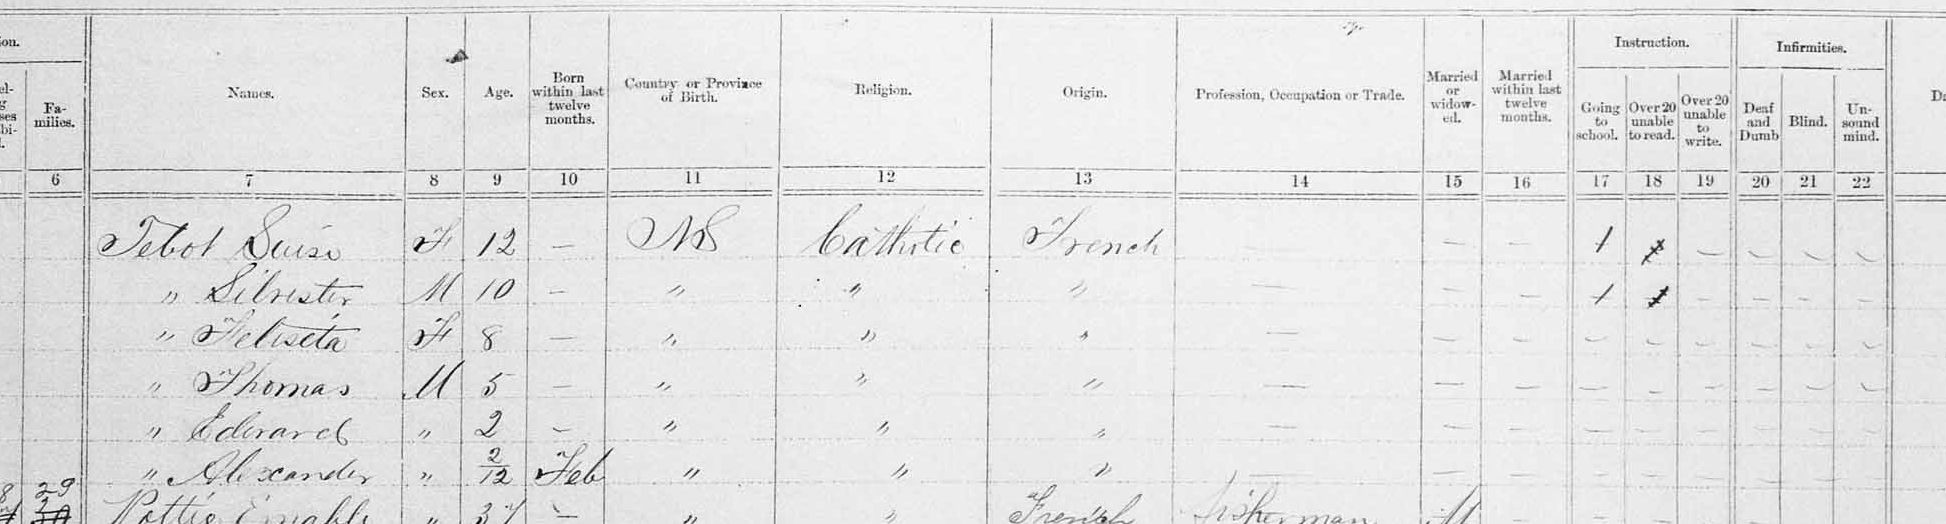 ion.
Instruction.
Infirmities.
el-
g
ses
bi-
Fa-
milies.
Names.
Sex.
Age.
Born
within last
twelve
months.
Country or Province
of Birth.
Religion.
Origin.
Profession, Occupation or Trade.
Married
or
widow-
ed.
Married
within last
twelve
months.
Going
to
school.
Over 20
unable
to read.
Over 20
unable
to
write.
Deaf
and
Dumb
Blind.
Un-
sound
mind.
Da
6 7 8 9 10 11 12 13 14 15 16 17 18 19 20 21 22
Tebot F 12 — NS Catholic French — — — 1 1 — — — —
" Silvester M 10 — " " " — — — 1 1 — — — —
" Feliseta F 8 — " " " — — — — — — — — —
" Thomas M 5 — " " " — — — — — — — — —
" Edward " 2 — " " " — — — — — — — — —
" Alexander " 2/12 Feb " " " — — — — — — — — —
29 " 37 — " " French fisherman M — — — — — — —